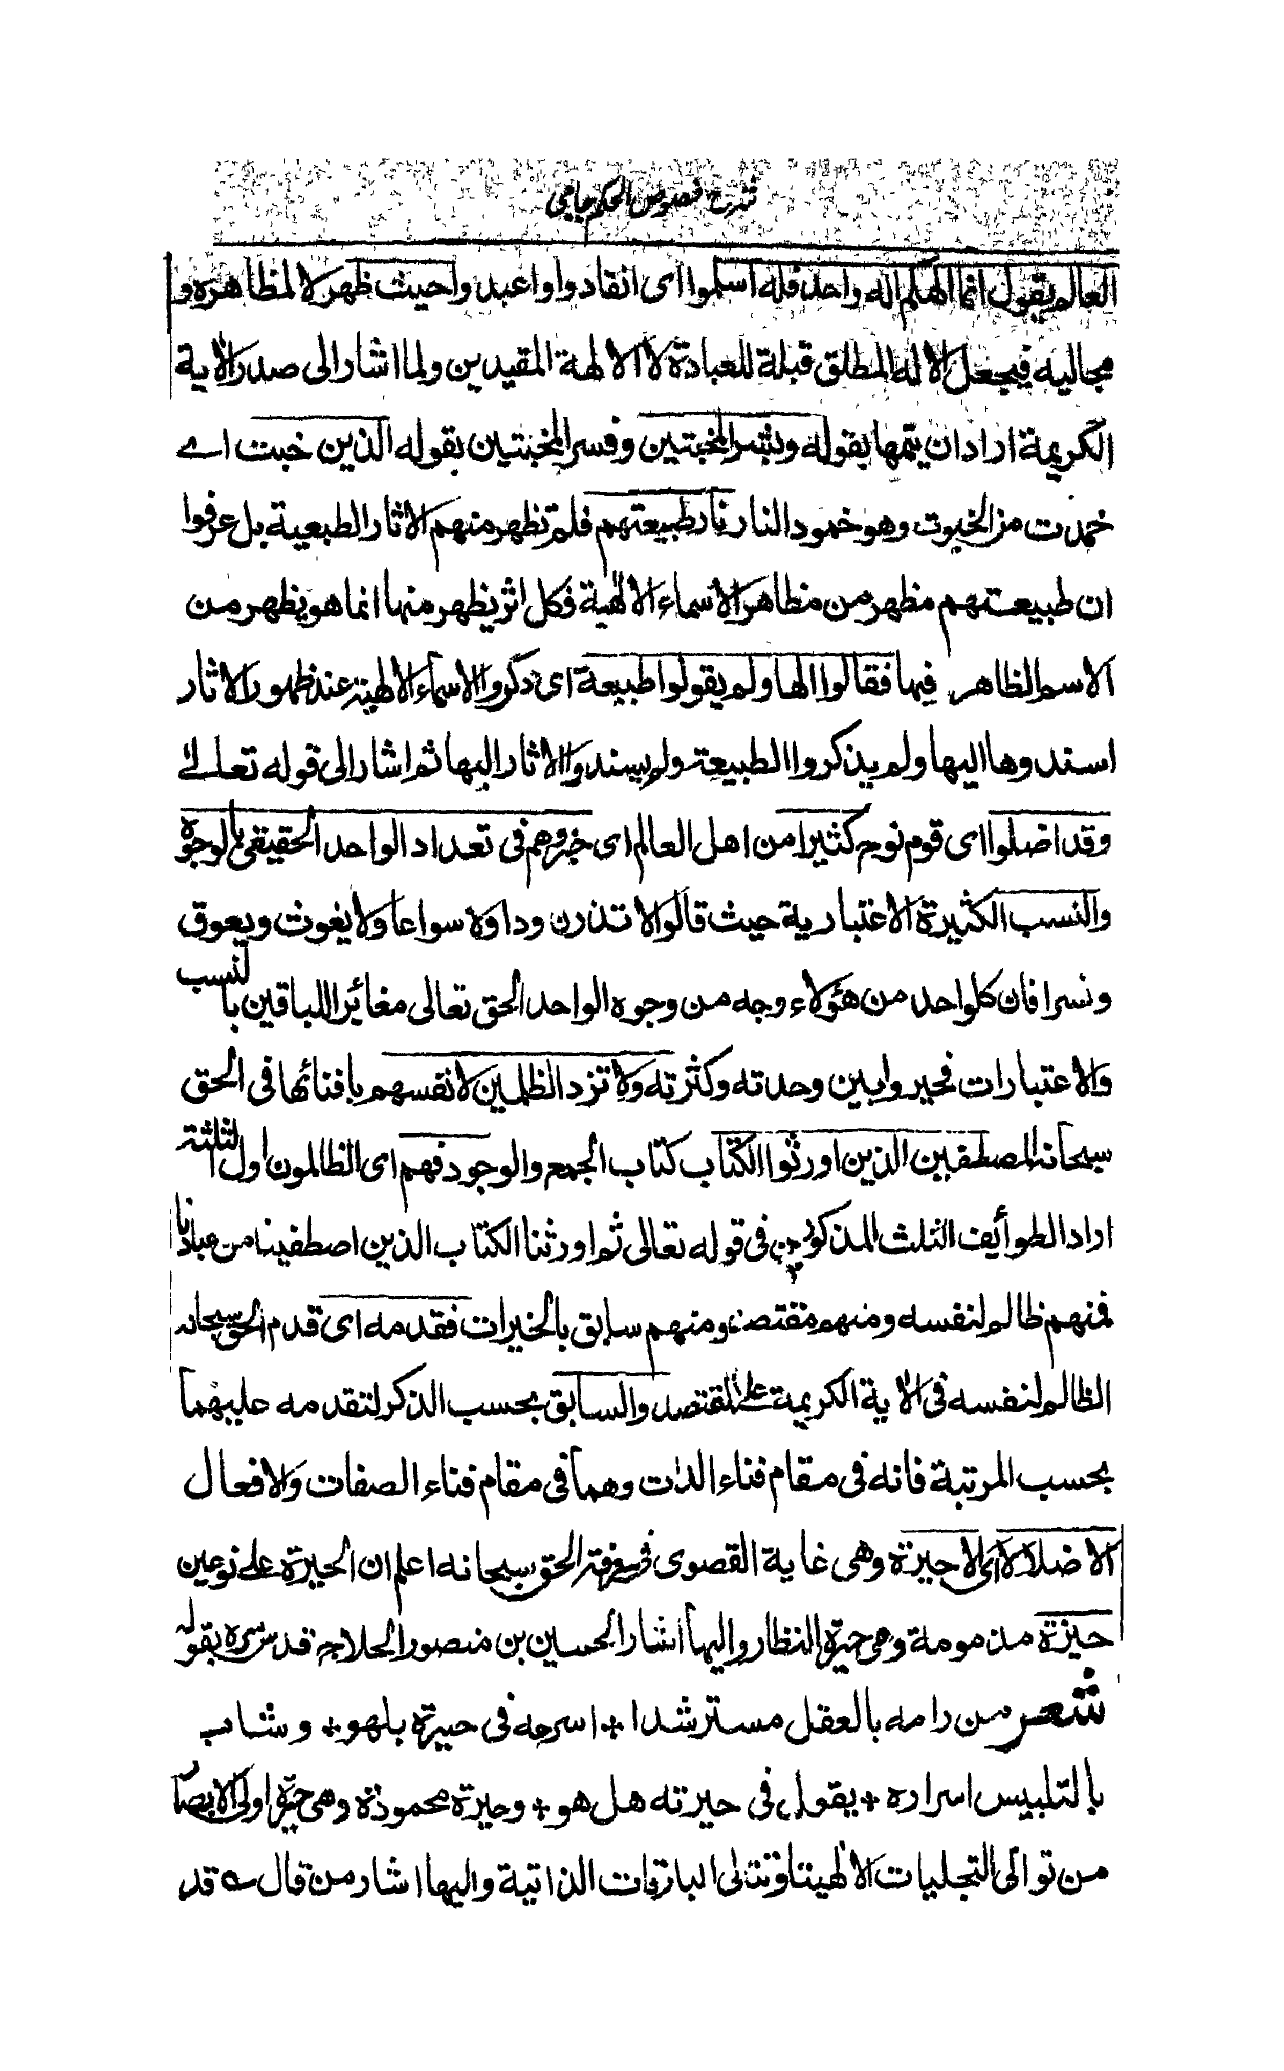 شرح فصوص الحكم جامى
العالم يقول انما الهكم اله واحد فله اسلموا اى انقادوا واعبدوا حيث ظهر لا لمظاهره و
مجاليه فيجعل الاله المطلق قبلة للعبادة لا الالهة المقيدين ولما اشار الى صدر الاية
الكريمة اراد ان يتمها بقوله وبشر المخبتين وفسر المخبتين بقوله الذين خبت اے
خمدت من الخبوت وهو خمود النار نار طبيعتهم فلم تظهر منهم الاثار الطبعية بل عرفوا
ان طبيعتهم مظهر من مظاهر الاسماء الالهية فكل اثر يظهر منها انما هو يظهر من
الاسم الظاهر فيها فقالوا الها ولم يقولوا طبيعة اى ذكروا الاسماء الالهية عند ظهور الاثار
اسندوها اليها ولم يذكروا الطبيعة ولم يسندوا الاثار اليها ثم اشار الى قوله تعالىٰ
وقد اضلوا اى قوم نوح كثيرا من اهل العالم اى حيروهم فى تعداد الواحد الحقيقى بالوجوه
والنسب الكثيرة الاعتبارية حيث قالوا لا تذرن ودا ولا سواعا ولا يغوث ويعوق
ونسرا فان كلواحد من هؤلاء وجه من وجوه الواحد الحق تعالى مغائر اللباقين بالنسب
والاعتبارات فحيروا بين وحدته وكثرته ولا تزد الظلمين لانفسهم بافنائها فى الحق
سبحانه المصطفين الذين اورثوا الكتاب كتاب الجمع والوجود فهم اى الظالمون اول الثلثة
اراد الطوائف الثلث المذكورين فى قوله تعالى ثم اورثنا الكتاب الذين اصطفينا من عبادنا
فمنهم ظالم لنفسه ومنهم مقتصد ومنهم سابق بالخيرات فقدمه اى قدم الحق سبحانه
الظالم لنفسه فى الاية الكريمة على المقتصد والسابق بحسب الذكر لتقدمه عليهما
بحسب المرتبة فانه فى مقام فناء الذات وهما فى مقام فناء الصفات والافعال
الا ضلالا اى الا حيرة وهى غاية القصوى فى معرفة الحق سبحانه اعلم ان الحيرة على نوعين
حيرة مذمومة وهى حيرة النظار واليها اشار الحسين بن منصور الحلاج قدس سره بقوله
شعر من رامه بالعقل مسترشدا + اسرحه فى حيرة بلهو + وشاب
بالتلبيس اسراره + يقول فى حيرته هل هو + وحيرة محمودة وهى حيرة اولى الابصار
من توالى التجليات الالهية وتتالى البارقات الذاتية واليها اشار من قال ؎ قد